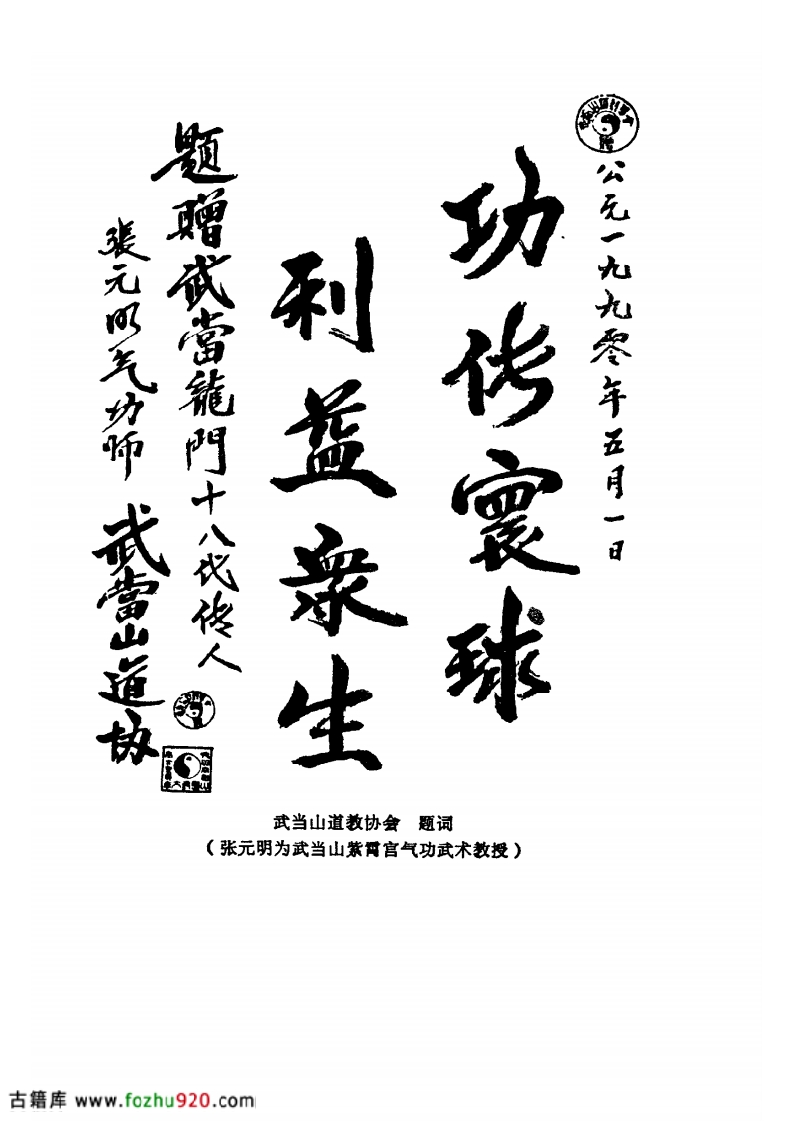 公元一九九零年五月一日
功传寰球
利益衆生
题赠武當龍門十八代传人
張元明气功师
武當山道协
武当山道教协会 题词
(张元明为武当山紫霄宫气功武术教授)
古籍库 www.fozhu920.com